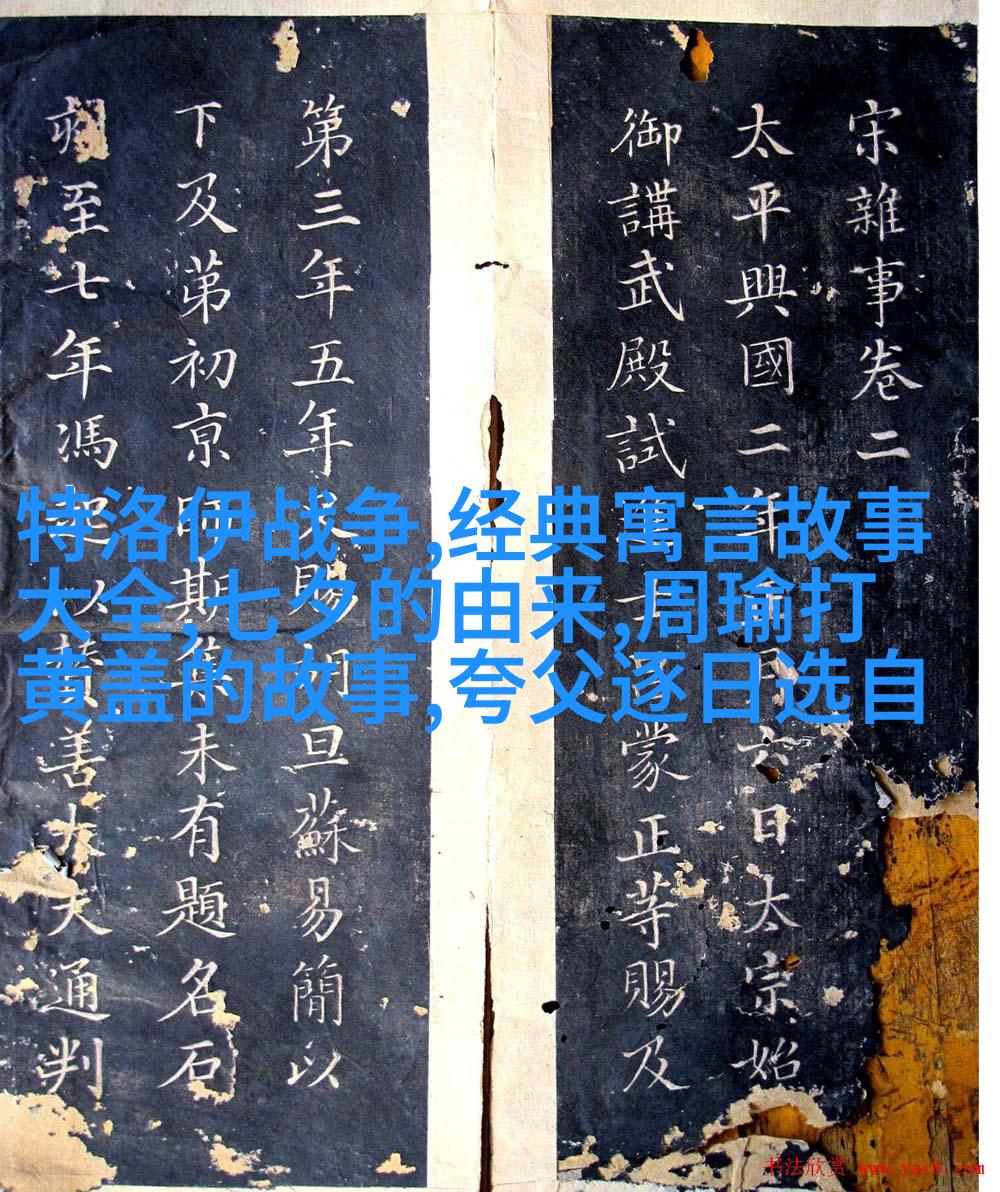 宋雜事卷二
太平興國二年
六日太宗始
御講武殿試
蒙正等賜及
第三年五年
賜
旦蘇易簡以
下及苐初京
期集未有題名石
至七年馮
善大夫通判
特洛伊战争,经典寓言故事
大全,七夕的由来,周瑜打
黄盖的故事,夸父逐日选自
书法欣赏 www.yac8.com